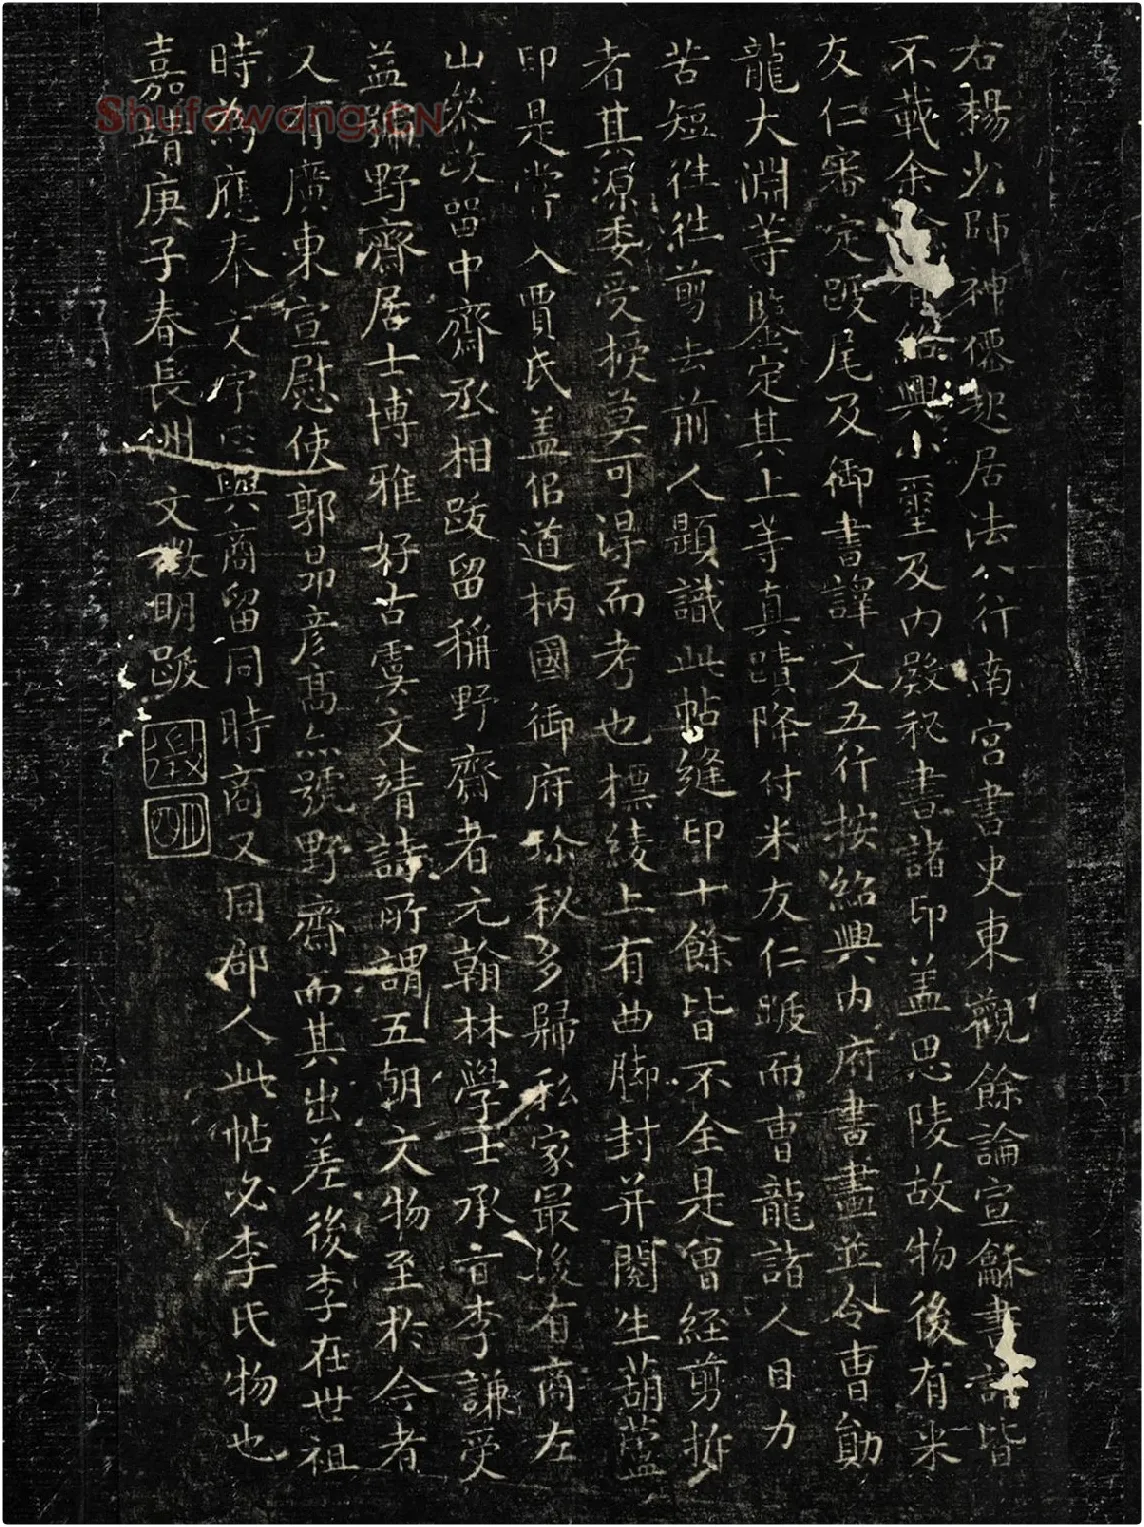 右楊少師神僊起居法八行南宮書史東觀餘論宣龢書譜皆
不載余 紹興小璽及內殿秘書諸印盖思陵故物後有米
友仁審定跋尾及御書譯文五行按紹興內府書畫並令曹勛
龍大淵等鑒定其上等真蹟降付米友仁跋而曹龍諸人目力
苦短往往剪去前人題識此帖縫印十餘皆不全是曾經剪拆
者其源委受授莫可得而考也標綾上有曲脚封并閱生葫蘆
印是常入賈氏盖佀道柄國御府珍秘多歸私家最後有商左
山參政留中齋丞相跋留稱野齋者元翰林學士承旨李謙受
益號野齋居士博雅好古虞文靖詩所謂五朝文物至於今者
又有廣東宣慰使郭昂彥高亦號野齋而其出差後李在世祖
時為應奉文字 與商留同時商又同郡人此帖必李氏物也
嘉靖庚子春長洲文徵明跋
徵
明
Shufawang.CN